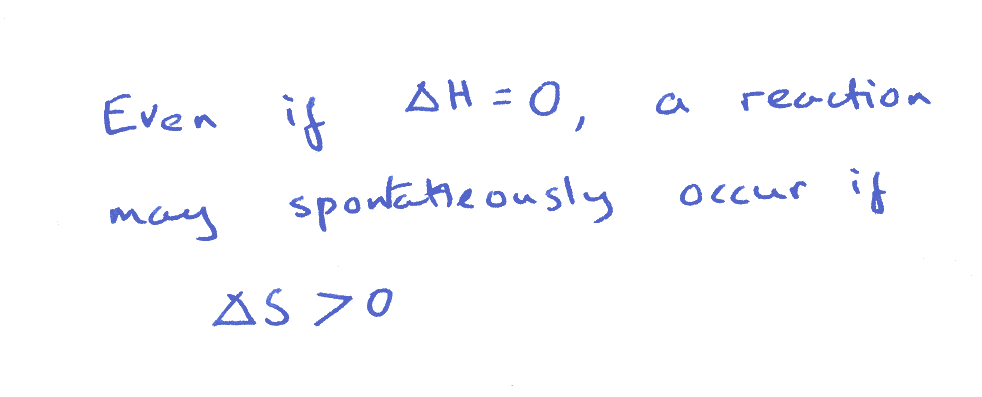 Even if ΔH = 0, a reaction
may spontaneously occur if
ΔS > 0